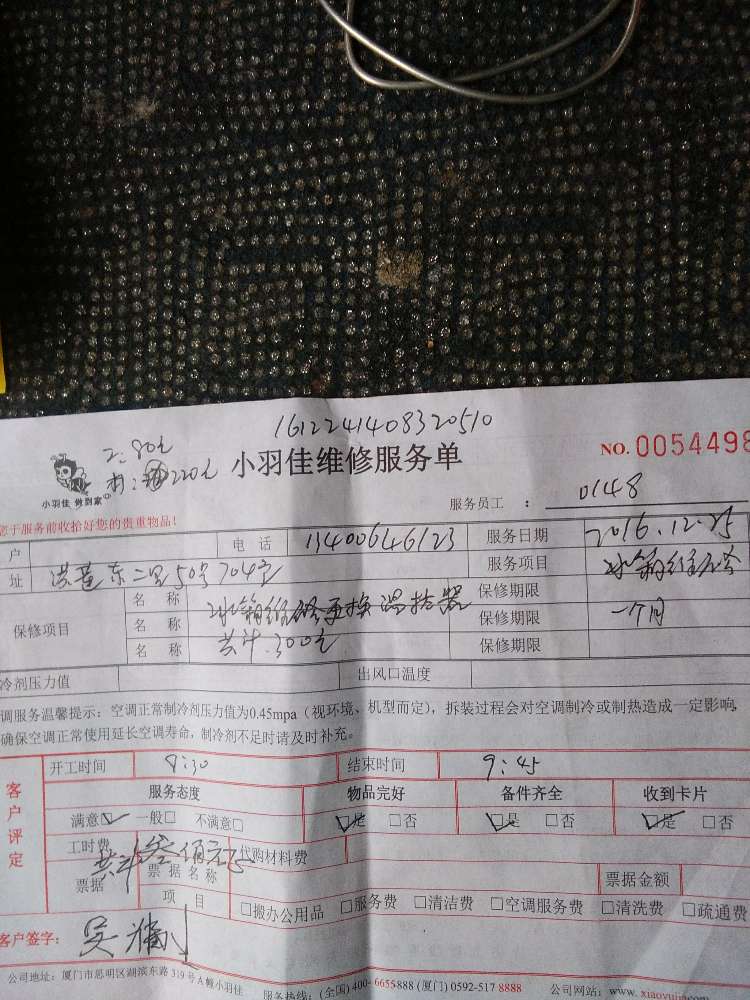 1612241408320510
工:80元
材:220元
小羽佳维修服务单
NO. 0054498
小羽佳 做到家
服务员工 : 0148
您于服务前收拾好您的贵重物品!
户 电 话 13400646123 服务日期 2016.12.25
址 洪莲东二里50号704室 服务项目 冰箱维修
保修项目
名 称 冰箱维修更换温控器 保修期限
名 称 保修期限 一个月
名 称 共计.300元 保修期限
冷剂压力值 出风口温度
调服务温馨提示:空调正常制冷剂压力值为0.45mpa(视环境、机型而定),拆装过程会对空调制冷或制热造成一定影响,
确保空调正常使用延长空调寿命,制冷剂不足时请及时补充。
客户评定
开工时间 8:30 结束时间 9:45
服务态度 物品完好 备件齐全 收到卡片
满意☑ 一般□ 不满意□ ☑是 □否 ☑是 □否 ☑是 □否
工时费 共计叁佰元 代购材料费
票据 票据名称 票据金额
项 目 □搬办公用品 □服务费 □清洁费 □空调服务费 □清洗费 □疏通费
客户签字: 吴
公司地址:厦门市思明区湖滨东路319号A幢小羽佳 服务热线:(全国)400-6655888 (厦门) 0592-517 8888 公司网站:www.xiaoyujia.com